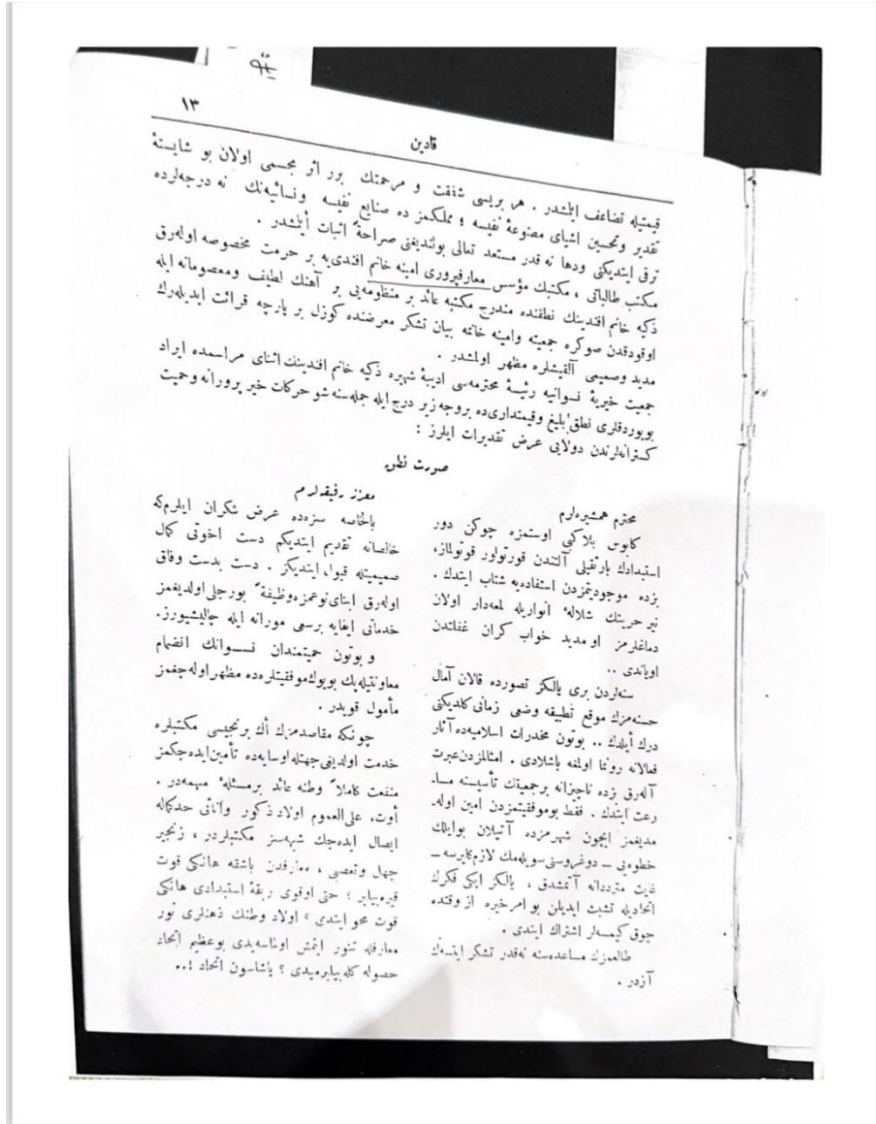 ١٣
قادین
قیمتیله تضاعف ایلمشدر . هر بریسی شفقت و مرحمتك برر اثر مجسمی اولان بو شایستهٔ
تقدیر وتحسین اشیای مصنوعهٔ نفیسه ؛ مملکمز ده صنایع نفیسه ونسائیه‌نك نه درجه‌لرده
ترقی ایتدیکنی ودها نه قدر مستعد تعالی بولندیغنی صراحةً اثبات أیلمشدر .
مکتب طالباتی ، مکتبك مؤسس معارفپروری امینه خانم افندی‌یه بر حرمت مخصوصه اوله‌رق
ذکیه خانم افندینك نطقنده مندرج مکتبه عائد بر منظومه‌یی بر آهنك لطیف ومعصومانه ایله
اوقودقدن صوکره جمعیته وامینه خانمه بیان تشکر معرضنده کوزل بر پارچه قرائت ایدیله‌رك
مدید وصمیمی آلقیشلره مظهر اولمشدر .
جمعیت خیریهٔ نسوانیه رئیسهٔ محترمه‌سی ادیبهٔ شهیره ذکیه خانم افندینك اثنای مراسمده ایراد
بویوردقلری نطق بلیغ وقیمتداری‌ده بروجه زیر درج ایله جمله‌سنه شو حرکات خیر پرورانه وحمیت
کسترانه‌لرندن دولایی عرض تقدیرات ایلرز :
صورت نطق
محترم همشیره‌لرم
کابوس بلاکبی اوستمزه چوکن دور
استبدادك بارثقیلی آلتندن قورتولور قورتولماز،
بزده موجودیتمزدن استفاده‌یه شتاب ایتدك .
نیر حریتك شلالهٔ انواریله لمعه‌دار اولان
دماغلرمز او مدید خواب کران غفلتدن
اویاندی
سنه‌لردن بری یالکز تصورده قالان آمال
حسنه‌مزك موقع تطبیقه وضعی زمانی کلدیکنی
درك أیلدك .. بوتون مخدرات اسلامیه‌ده آثار
فعالانه رونما اولمغه باشلادی . امثالمزدن عبرت
آله‌رق بزده ناچیزانه برجمعیتك تأسیسنه مسا-
رعت ایتدك . فقط بوموفقیتمزدن امین اوله-
مدیغمز ایچون شهرمزده آتیلان بوایلك
خطوه‌یی — دوغروسنی سویله‌مك لازم‌کلیرسه —
غایت مترددانه آتمشدق ، یالکز ایکی فکرك
اتحادیله تشبث ایدیلن بو امر خیره از وقتده
چوق کیمسه‌لر اشتراك ایتدی .
طالعمزك مساعده‌سنه نه‌قدر تشکر ایتسه‌ك
آزدر .
معزز رفیقه‌لرم
بالخاصه سزه‌ده عرض شکران ایلرم‌که
خالصانه تقدیم ایتدیکم دست اخوتی کمال
صمیمیتله قبول ایتدیکز . دست بدست وفاق
اوله‌رق ابنای نوعمزه وظیفةً بورجلی اولدیغمز
خدماتی ایفایه برسعی مورانه ایله چالیشیورز.
و بوتون حمیتمندان نسوانك انضمام
معاونتیله‌پك بویوك موفقیتلره‌ده مظهر اوله‌جغمز
مأمول قویدر .
چونکه مقاصدمزك أك برنجیسی مکتبلره
خدمت اولدیغی جهتله اوسایه‌ده تأمین ایده‌جکمز
منفعت کاملاً وطنه عائد برمسئلهٔ مهمه‌در .
أوت، علی العموم اولاد ذکور واناثی حدکماله
ایصال ایده‌جك شبهه‌سز مکتبلردر ، زنجیر
جهل وتعصبی ، معارفدن باشقه هانکی قوت
قیره‌بیلیر ؟ حتی اوقوی ربقهٔ استبدادی هانکی
قوت محو ایتدی ؟ اولاد وطنك ذهنلری نور
معارفله تنور ایتمش اولماسه‌یدی بوعظیم اتحاد
حصوله کله‌بیلیرمیدی ؟ یاشاسون اتحاد !..